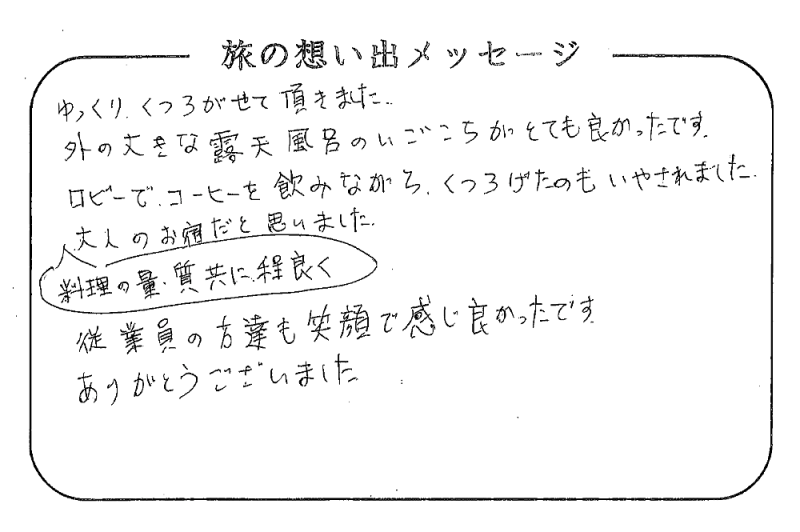 旅の想い出メッセージ
ゆっくり、くつろがせて頂きました。
外の大きな露天風呂のいごこちがとても良かったです。
ロビーで、コーヒーを飲みながら、くつろげたのもいやされました。
大人のお宿だと思いました。
料理の量・質共に、程良く
従業員の方達も笑顔で感じ良かったです
ありがとうございました